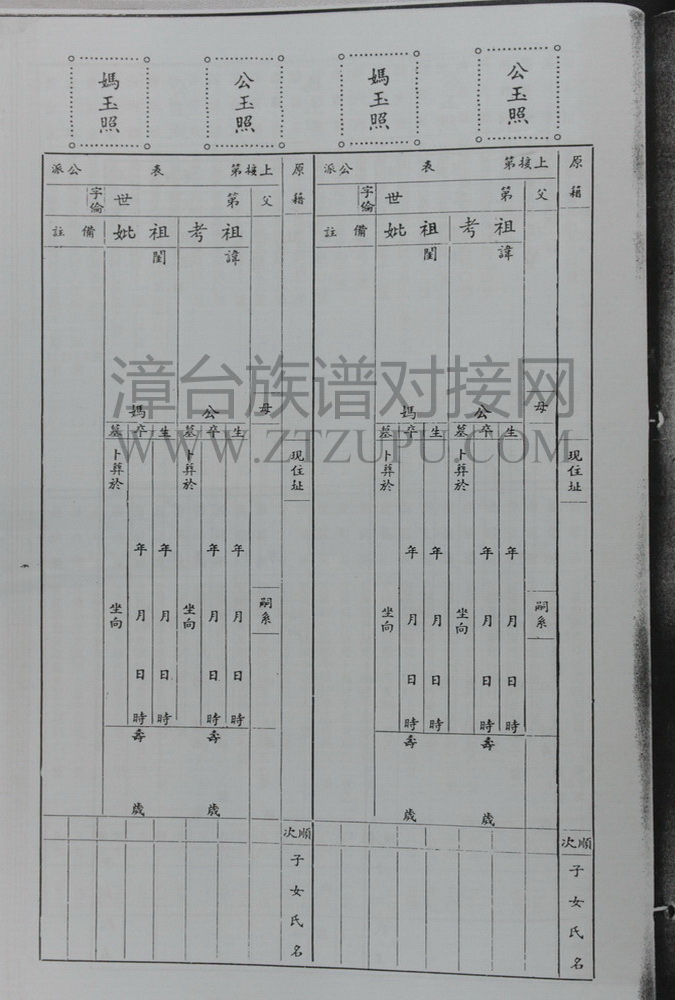 公玉照
媽玉照
公玉照
媽玉照
原籍
現住址
順次
子女氏名
上接第 表 公派
父 第 世 字倫
祖考 祖妣 備註
諱
閨
母
公
媽
生 卒 墓 生 卒 墓
卜葬於
卜葬於
嗣系
年 月 日 時
年 月 日 時
坐向
年 月 日 時
年 月 日 時
坐向
壽 歲
壽 歲
原籍
現住址
順次
子女氏名
上接第 表 公派
父 第 世 字倫
祖考 祖妣 備註
諱
閨
母
公
媽
生 卒 墓 生 卒 墓
卜葬於
卜葬於
嗣系
年 月 日 時
年 月 日 時
坐向
年 月 日 時
年 月 日 時
坐向
壽 歲
壽 歲
漳台族谱对接网
WWW.ZTZUPU.COM